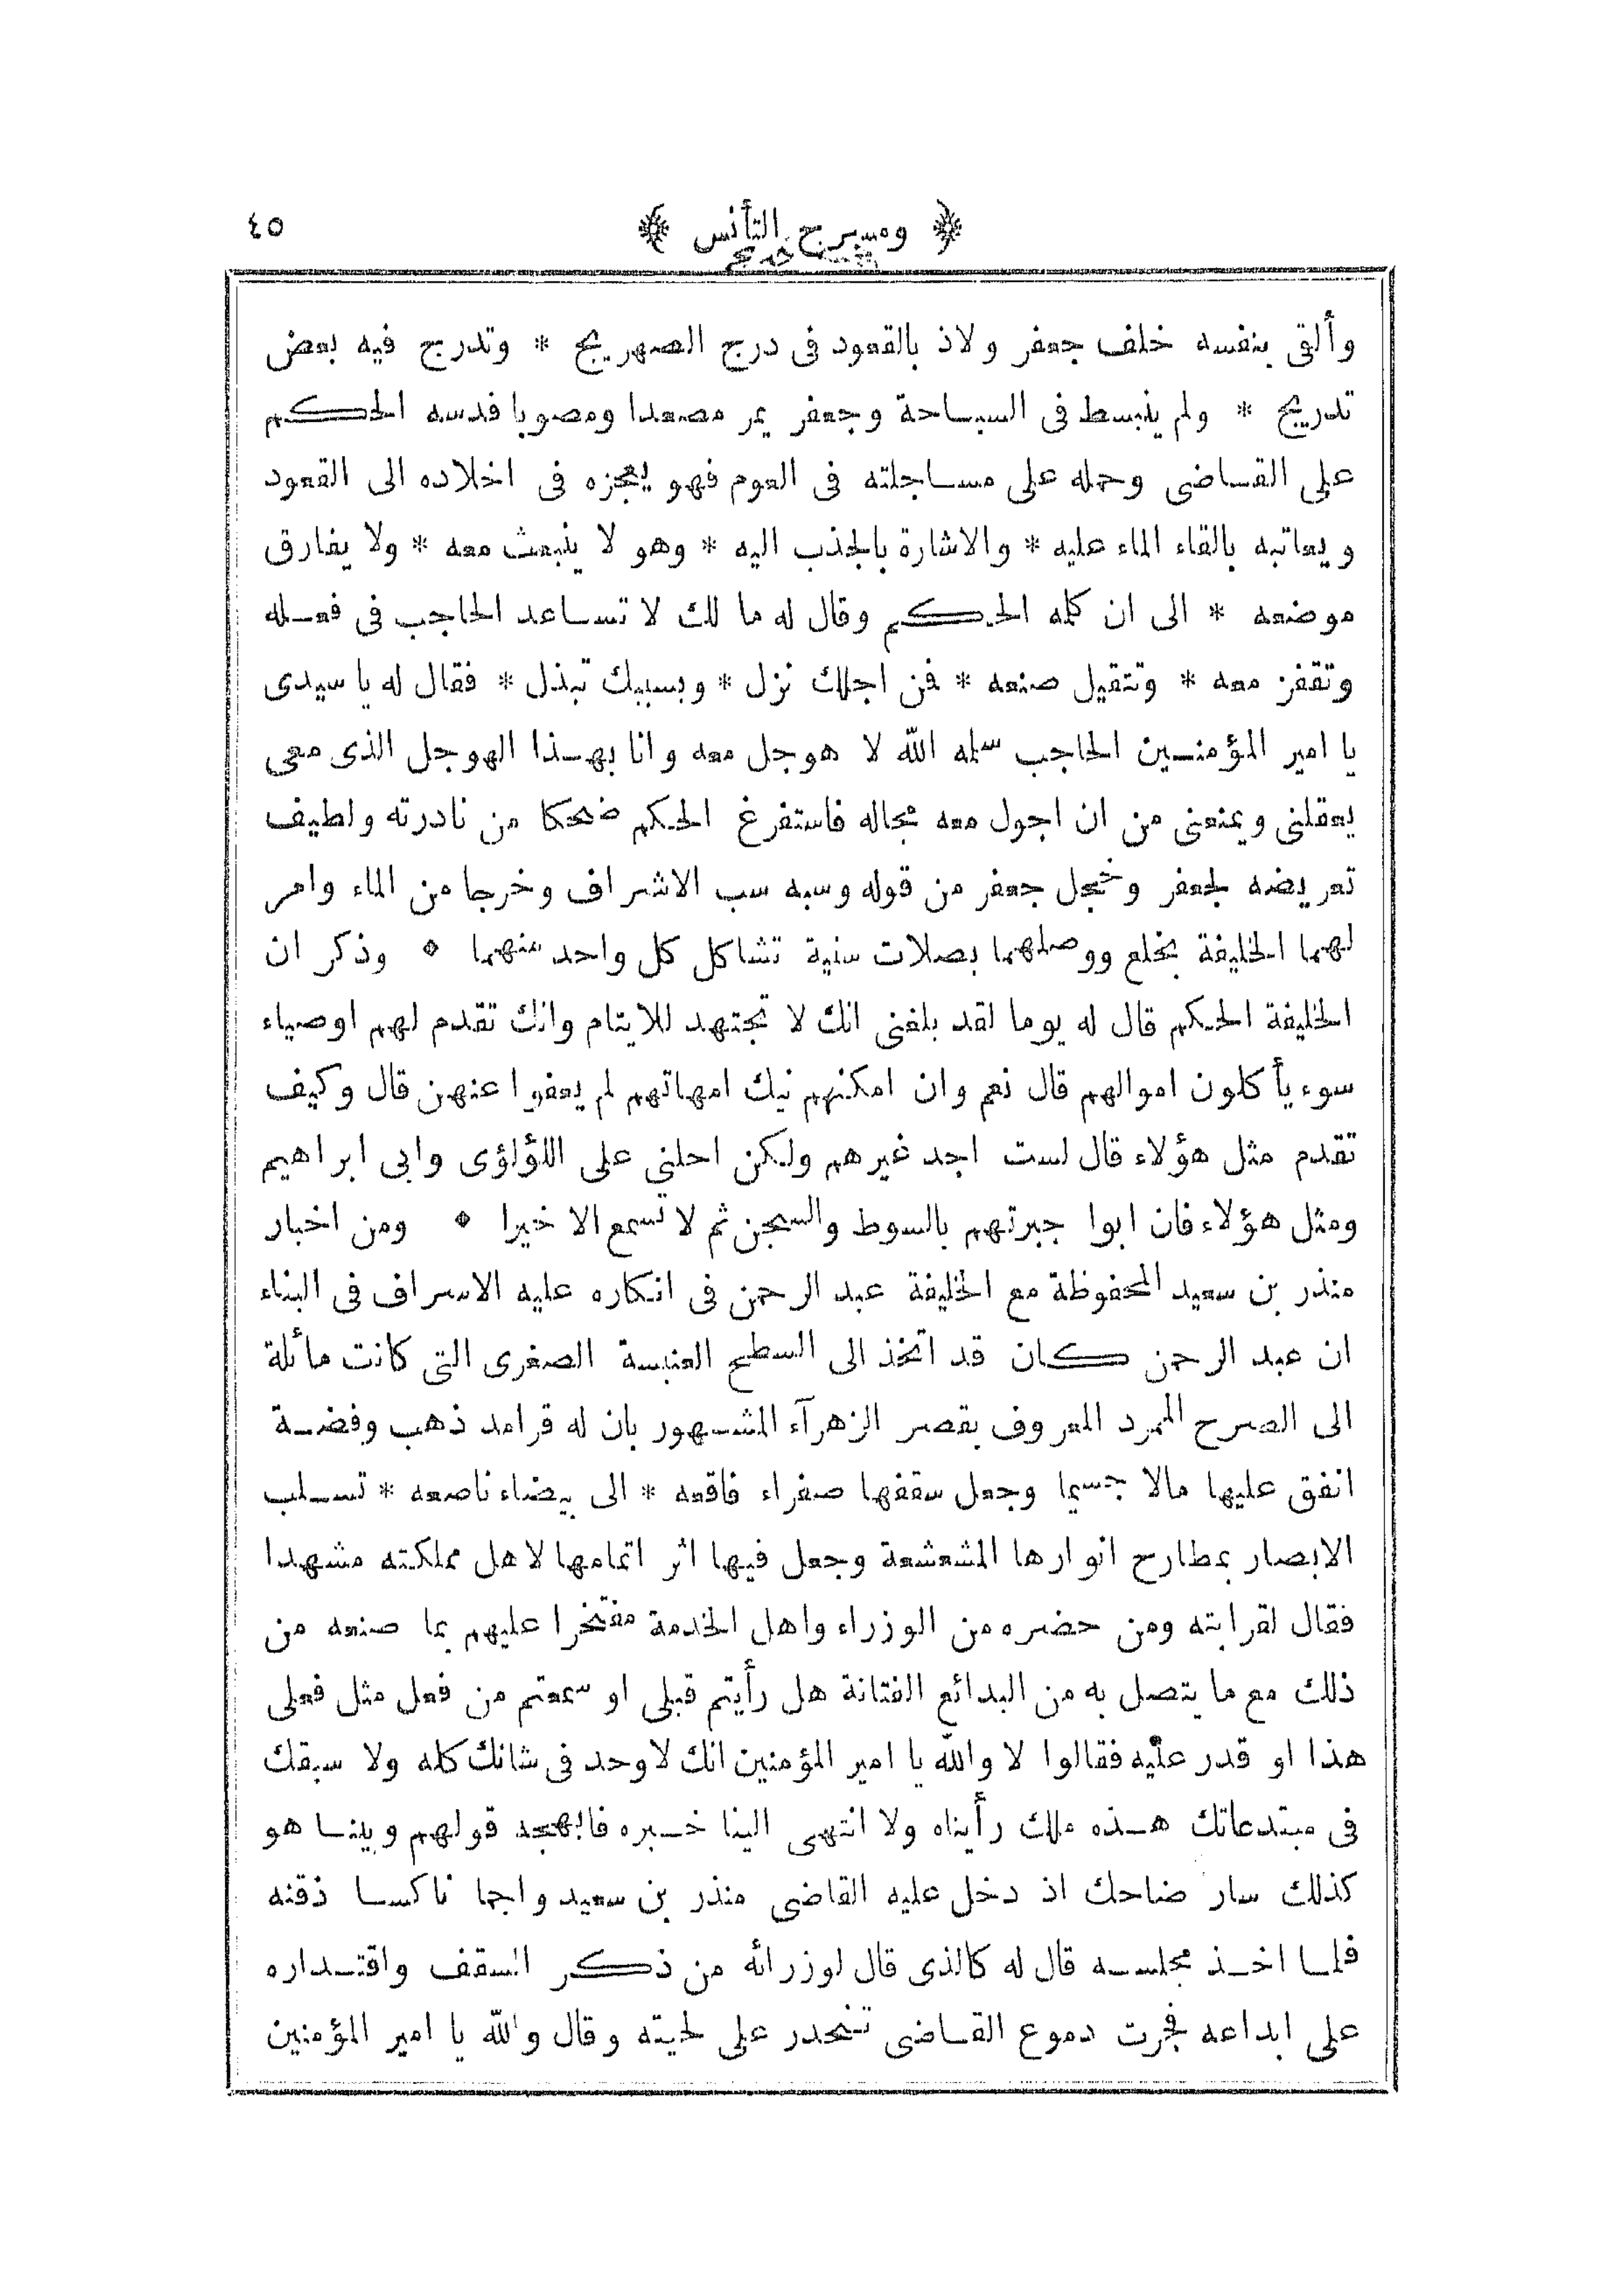 ﴿ ومسرح التأنس ﴾ ٤٥
وألقى بنفسه خلف جعفر ولاذ بالقعود فى درج الصهريج * وتدرج فيه بعض
تدريج * ولم ينبسط فى السباحة وجعفر يمر مصعدا ومصوبا فدسه الحكم
على القاضى وحمله على مساجلته فى العوم فهو يعجزه فى اخلاده الى القعود
ويعاتبه بالقاء الماء عليه * والاشارة بالجذب اليه * وهو لا ينبعث معه * ولا يفارق
موضعه * الى ان كلمه الحكم وقال له ما لك لا تساعد الحاجب فى فعله
وتقفز معه * وتتقيل صنعه * فمن اجلك نزل * وبسببك تبذل * فقال له يا سيدى
يا امير المؤمنين الحاجب سلمه الله لا هوجل معه وانا بهذا الهوجل الذى معى
يعقلنى ويمنعنى من ان اجول معه مجاله فاستفرغ الحكم ضحكا من نادرته ولطيف
تعريضه لجعفر وخجل جعفر من قوله وسبه سب الاشراف وخرجا من الماء وامر
لهما الخليفة بخلع ووصلهما بصلات سنية تشاكل كل واحد منهما ۞ وذكر ان
الخليفة الحكم قال له يوما لقد بلغنى انك لا تجتهد للايتام وانك تقدم لهم اوصياء
سوء يأكلون اموالهم قال نعم وان امكنهم نيك امهاتهم لم يعفوا عنهن قال وكيف
تقدم مثل هؤلاء قال لست اجد غيرهم ولكن احلنى على اللؤلؤى وابى ابراهيم
ومثل هؤلاء فان ابوا جبرتهم بالسوط والسجن ثم لا تسمع الا خيرا ۞ ومن اخبار
منذر بن سعيد المحفوظة مع الخليفة عبد الرحمن فى انكاره عليه الاسراف فى البناء
ان عبد الرحمن كان قد اتخذ الى السطح العنبسة الصغرى التى كانت مائلة
الى الصرح الممرد المعروف بقصر الزهرآء المشهور بان له قرامد ذهب وفضة
انفق عليها مالا جسيما وجعل سقفها صفراء فاقعه * الى بيضاء ناصعه * تسلب
الابصار بمطارح انوارها المشعشعة وجعل فيها اثر اتمامها لاهل مملكته مشهدا
فقال لقرابته ومن حضره من الوزراء واهل الخدمة مفتخرا عليهم بما صنعه من
ذلك مع ما يتصل به من البدائع الفتانة هل رأيتم قبلى او سمعتم من فعل مثل فعلى
هذا او قدر عليه فقالوا لا والله يا امير المؤمنين انك لاوحد فى شانك كله ولا سبقك
فى مبتدعاتك هذه ملك رأيناه ولا انتهى الينا خبره فابهجه قولهم وبينا هو
كذلك سار ضاحك اذ دخل عليه القاضى منذر بن سعيد واجما ناكسا ذقنه
فلما اخذ مجلسه قال له كالذى قال لوزرائه من ذكر السقف واقتداره
على ابداعه فجرت دموع القاضى تنحدر على لحيته وقال والله يا امير المؤمنين